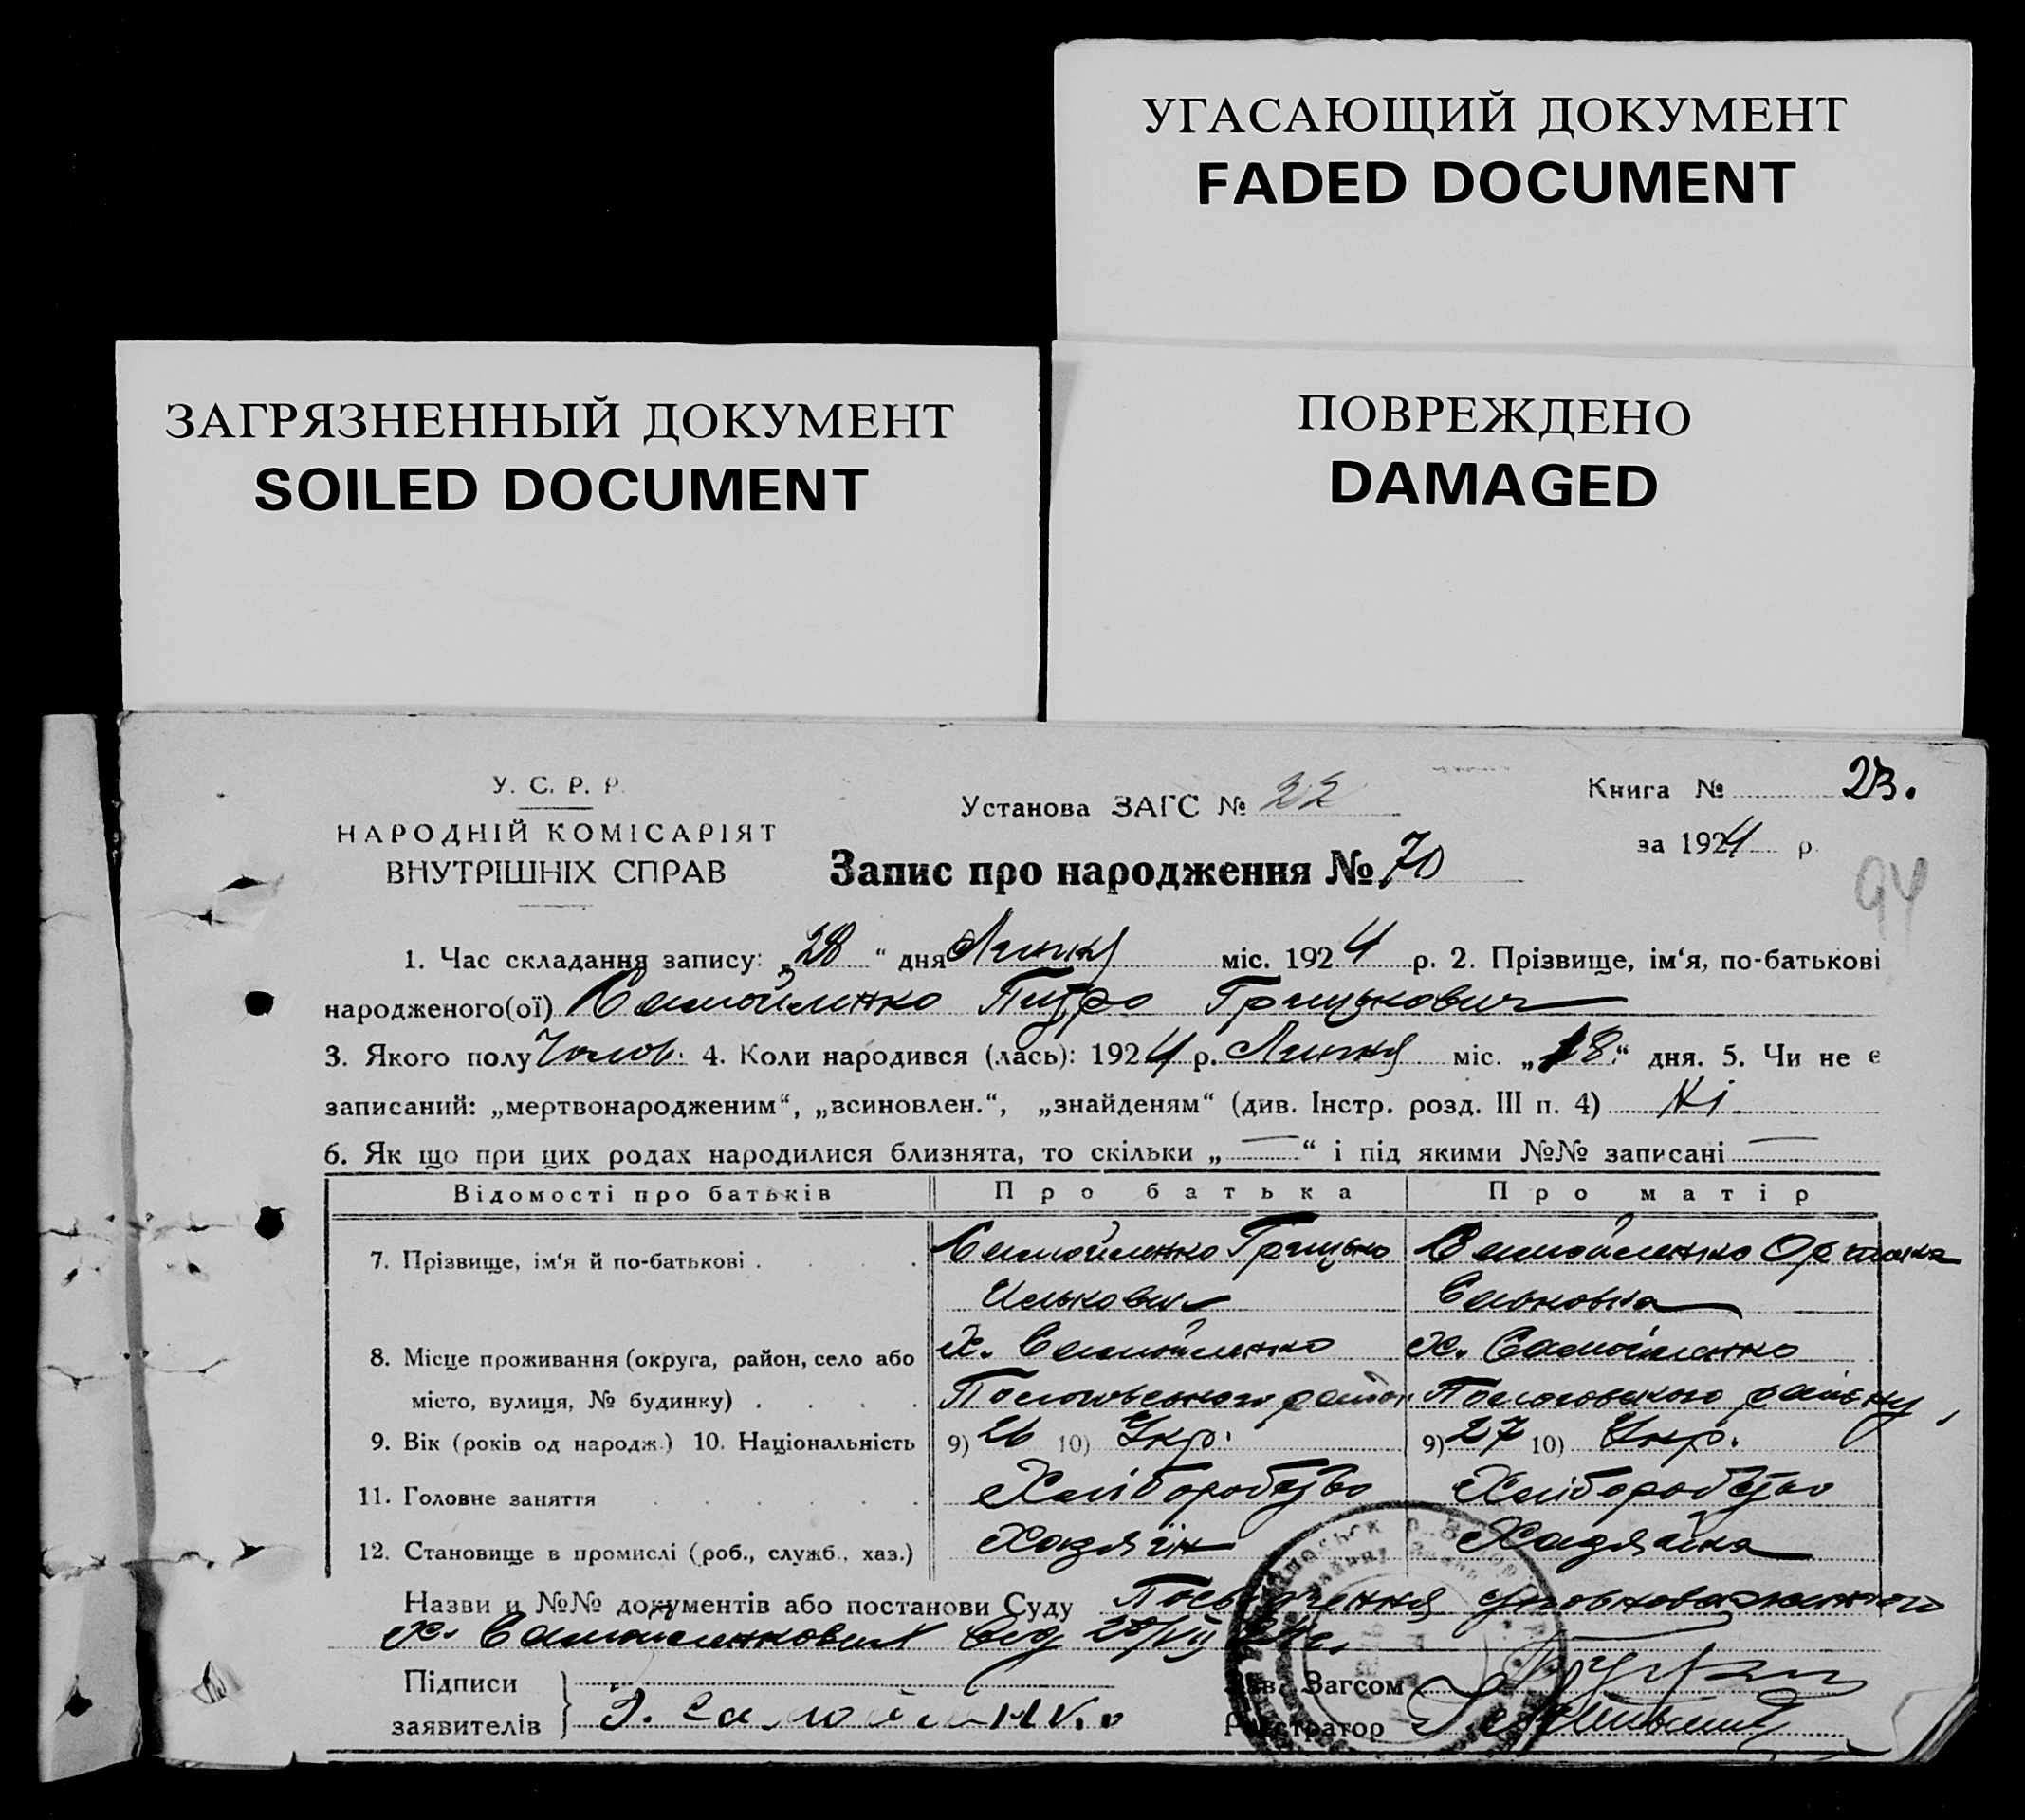 УГАСАЮЩИЙ ДОКУМЕНТ
FADED DOCUMENT
ЗАГРЯЗНЕННЫЙ ДОКУМЕНТ
SOILED DOCUMENT
ПОВРЕЖДЕНО
DAMAGED
У. С. Р. Р.
НАРОДНІЙ КОМІСАРІЯТ
ВНУТРІШНІХ СПРАВ
Установа ЗАГС № 22
Книга № 23.
за 1924 р.
Запис про народження № 70
94
1. Час складання запису: „28“ дня Липня міс. 1924 р. 2. Прізвище, ім‘я, по-батькові
народженого(ої) Самойленко Петро Грицькович
3. Якого полу Чолов. 4. Коли народився (лась): 1924 р. Липня міс. „18“ дня. 5. Чи не є
записаний: „мертвонародженим“, „всиновлен.“, „знайденям“ (див. Інстр. розд. III п. 4) Ні
6. Як що при цих родах народилися близнята, то скільки „—“ і під якими №№ записані —
Відомості про батьків Про батька Про матір
7. Прізвище, ім‘я й по-батькові . . . . Самойленко Грицько Самойленко
Илькович
8. Місце проживання (округа, район, село або Х. Самойленко Х. Самойленко
місто, вулиця, № будинку) . . . . Пологовського район Пологовського району,
9. Вік (років од народж.) 10. Національність 9) 26 10) Укр. 9) 27 10) Укр.
11. Головне заняття . . . . . . Хліборобство Хліборобство
12. Становище в промислі (роб., служб., хаз.) Хазяїн Хазяйка
Назви и №№ документів або постанови Суду Посвідчення уповноваженого
х. Самойленкових від 28/VII 24 р.
Підписи
заявителів } Самойленко
Зав. Загсом
Реєстратор